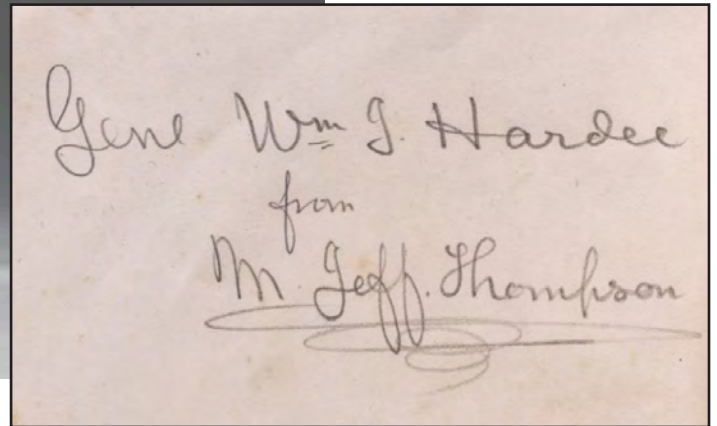 Genl Wm J. Hardee
from
M. Jeff. Thompson